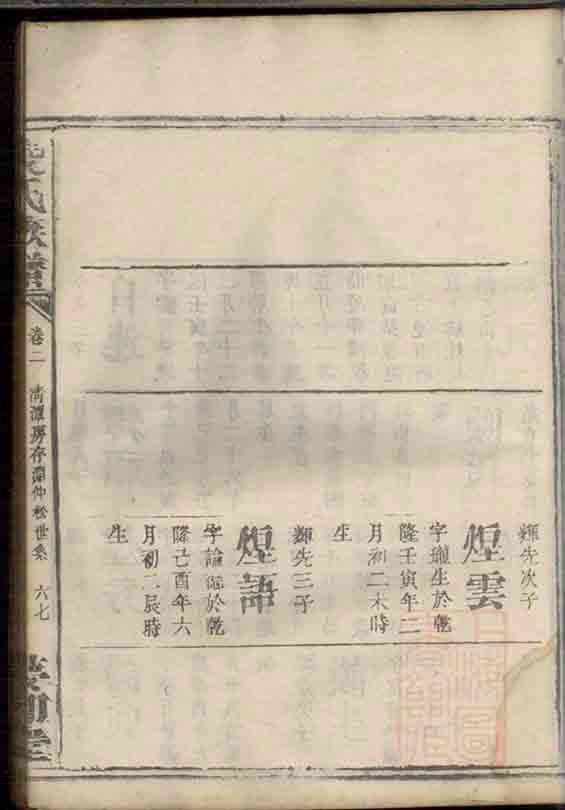 輝先次子
煌雲
字瓏生於乾
隆壬寅年二
月初二未時
生
輝先三子
煌語
字論歸於乾
隆己酉年六
月初二辰時
生
氏族譜
卷二
清潭房存瀾仲松世系
六七